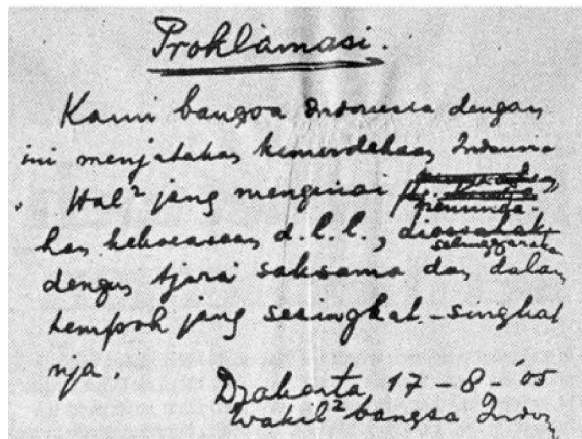 Proklamasi.
Kami bangsa Indonesia dengan
ini menjatakan kemerdekaan Indonesia
Hal² jang mengenai
peminda-
han kekoeasaan d.l.l., dioesahak
selenggarakan
dengan tjara saksama dan dalam
tempoh jang sesingkat-singkat
nja.
Djakarta, 17-8-'05
Wakil² bangsa Indon